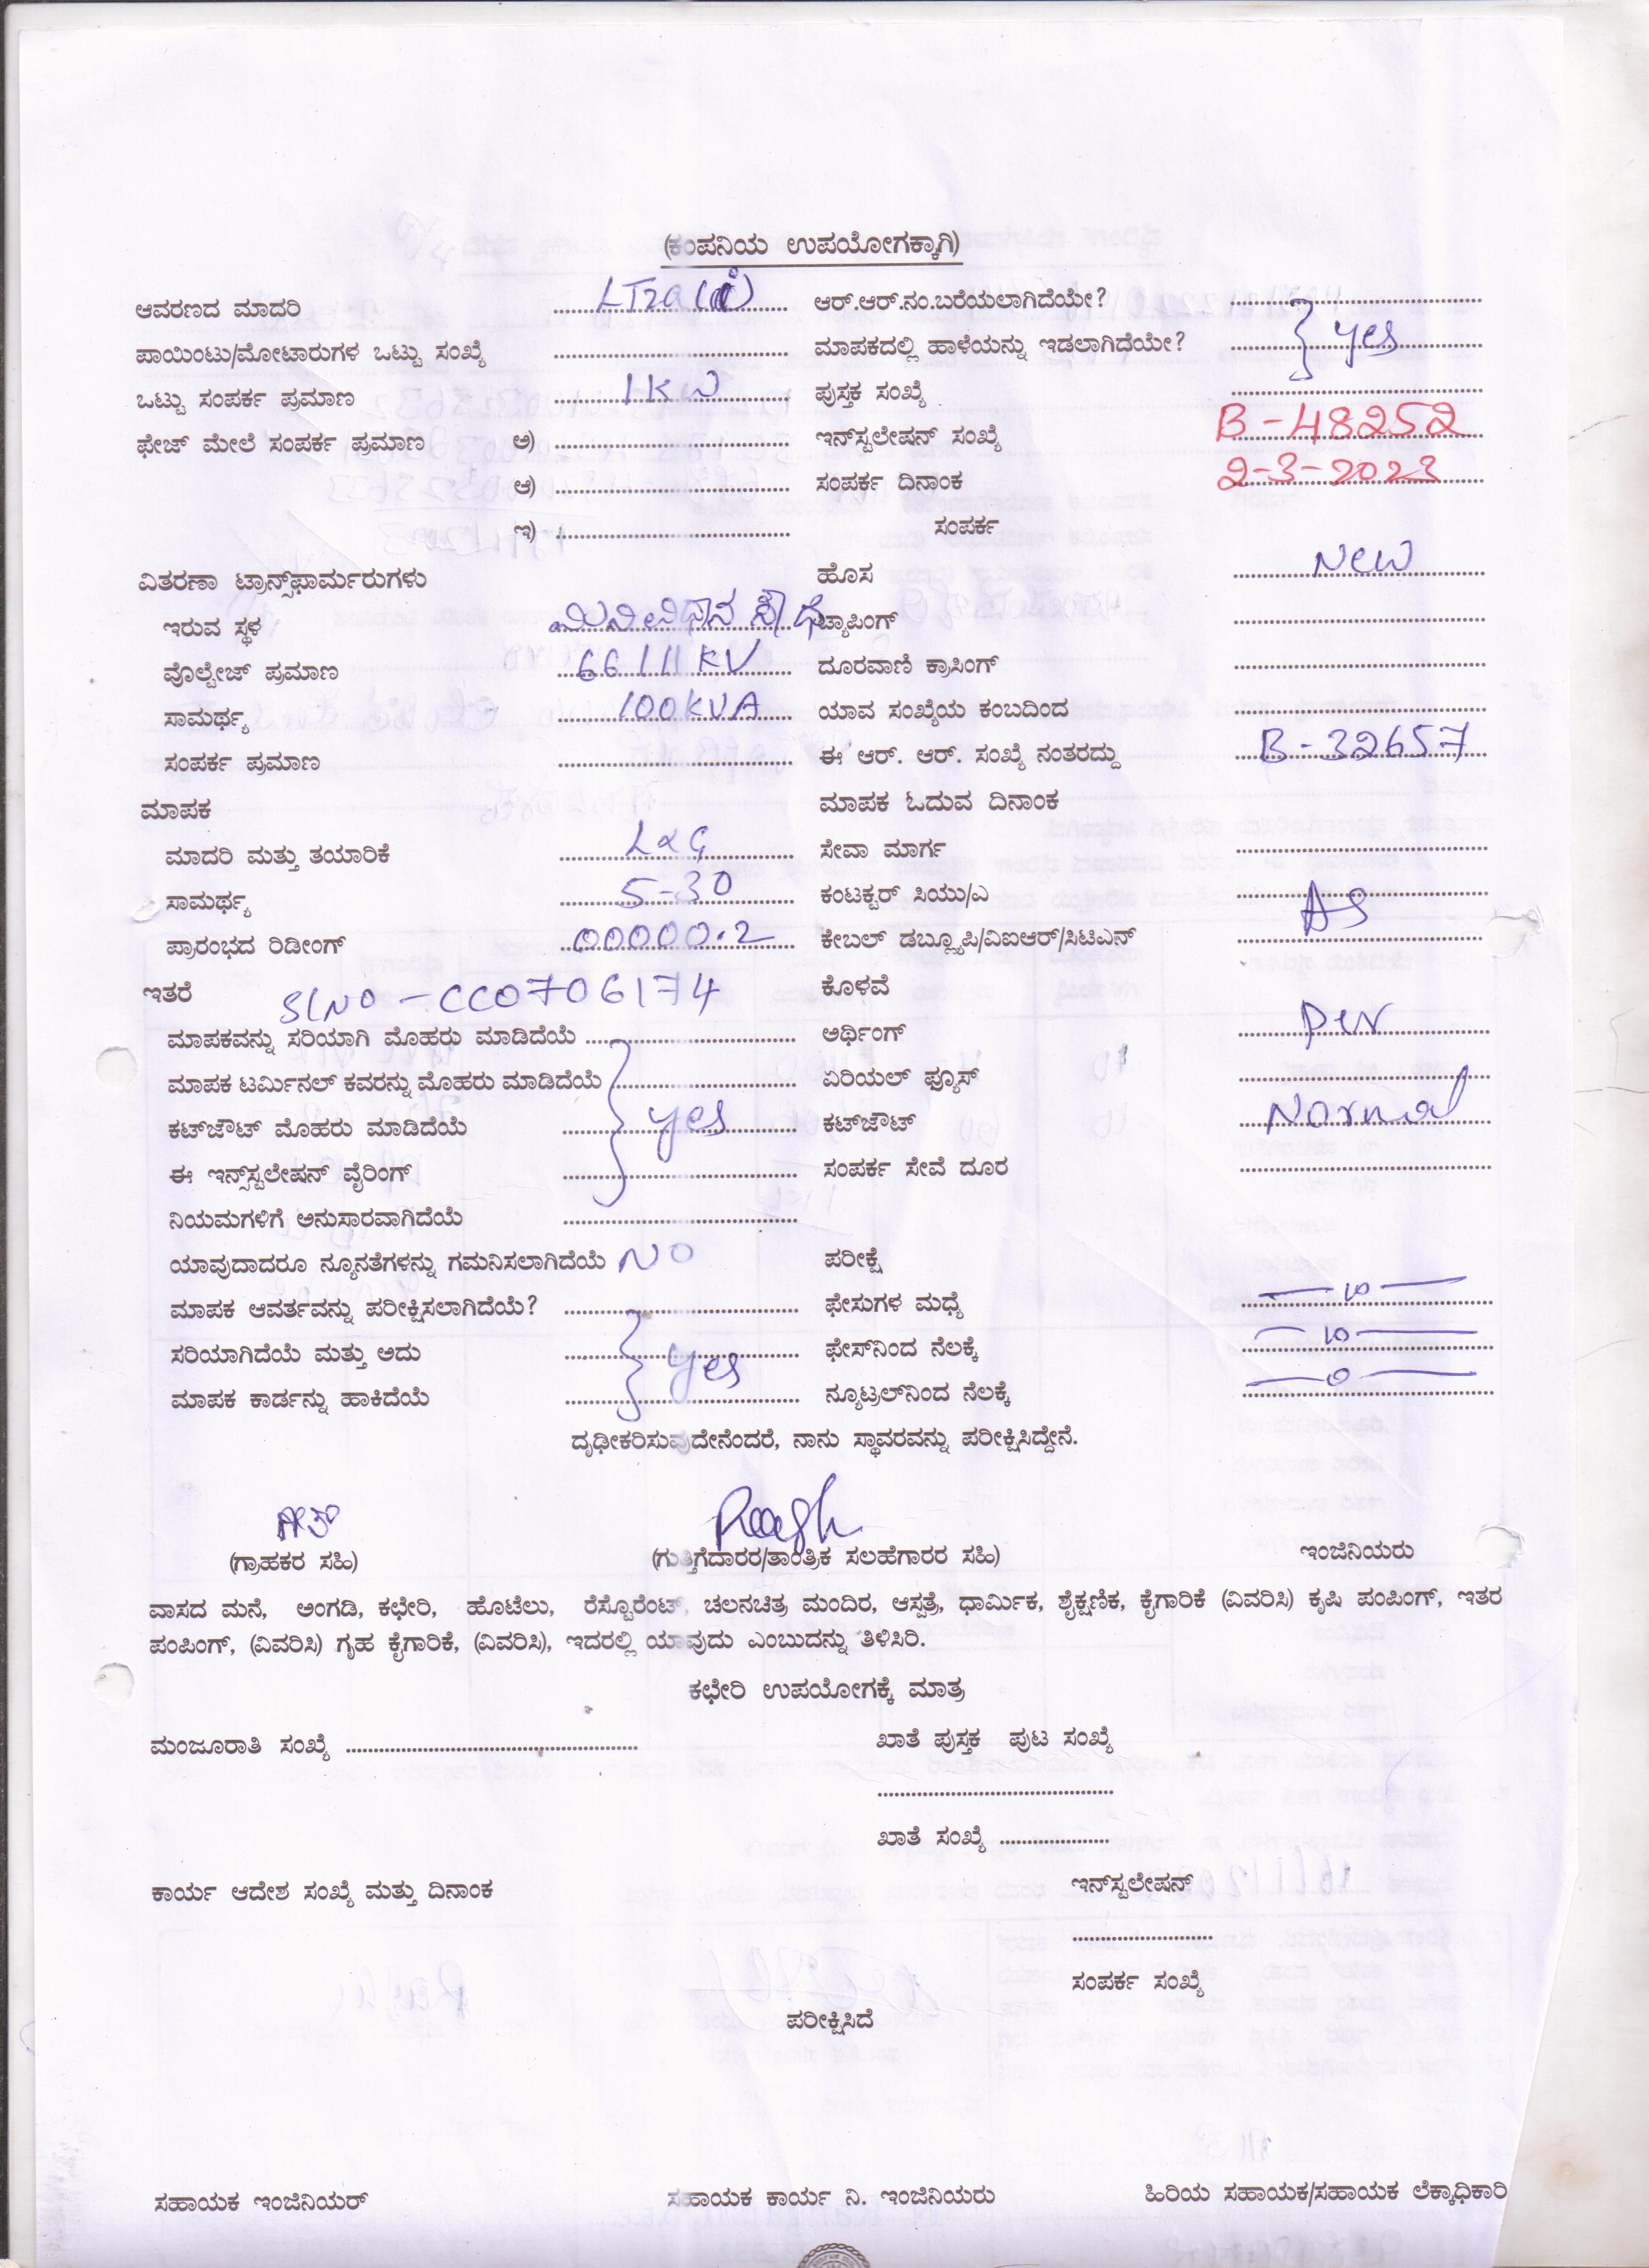 (ಕಂಪನಿಯ ಉಪಯೋಗಕ್ಕಾಗಿ)
ಆವರಣದ ಮಾದರಿ ಆರ್.ಆರ್.ನಂ.ಬರೆಯಲಾಗಿದೆಯೇ?
ಪಾಯಿಂಟು/ಮೋಟಾರುಗಳ ಒಟ್ಟು ಸಂಖ್ಯೆ ಮಾಪಕದಲ್ಲಿ ಹಾಳೆಯನ್ನು ಇಡಲಾಗಿದೆಯೇ? yes
ಒಟ್ಟು ಸಂಪರ್ಕ ಪ್ರಮಾಣ 1KW ಪುಸ್ತಕ ಸಂಖ್ಯೆ
ಫೇಜ್ ಮೇಲೆ ಸಂಪರ್ಕ ಪ್ರಮಾಣ ಅ) ಇನ್‌ಸ್ಟಲೇಷನ್ ಸಂಖ್ಯೆ B-48252
ಆ) ಸಂಪರ್ಕ ದಿನಾಂಕ 2-3-2023
ಇ) ಸಂಪರ್ಕ
ವಿತರಣಾ ಟ್ರಾನ್ಸ್‌ಫಾರ್ಮರುಗಳು ಹೊಸ New
ಇರುವ ಸ್ಥಳ ಮಿನಿ ವಿಧಾನ ಸೌಧ ಟ್ಯಾಪಿಂಗ್
ವೊಲ್ಟೇಜ್ ಪ್ರಮಾಣ 66/11 KV ದೂರವಾಣಿ ಕ್ರಾಸಿಂಗ್
ಸಾಮರ್ಥ್ಯ 100KVA ಯಾವ ಸಂಖ್ಯೆಯ ಕಂಬದಿಂದ
ಸಂಪರ್ಕ ಪ್ರಮಾಣ ಈ ಆರ್. ಆರ್. ಸಂಖ್ಯೆ ನಂತರದ್ದು B-32657
ಮಾಪಕ ಮಾಪಕ ಓದುವ ದಿನಾಂಕ
ಮಾದರಿ ಮತ್ತು ತಯಾರಿಕೆ L&G ಸೇವಾ ಮಾರ್ಗ
ಸಾಮರ್ಥ್ಯ 5-30 ಕಂಟಕ್ಟರ್ ಸಿಯು/ಎ
ಪ್ರಾರಂಭದ ರಿಡೀಂಗ್ 00000.2 ಕೇಬಲ್ ಡಬ್ಲ್ಯೂಪಿ/ವಿಐಆರ್/ಸಿಟಿಎನ್ AS
ಇತರೆ SlNO-CC0706174 ಕೊಳವೆ
ಮಾಪಕವನ್ನು ಸರಿಯಾಗಿ ಮೊಹರು ಮಾಡಿದೆಯೆ ಅರ್ಥಿಂಗ್ per
ಮಾಪಕ ಟರ್ಮಿನಲ್ ಕವರನ್ನು ಮೊಹರು ಮಾಡಿದೆಯೆ ಏರಿಯಲ್ ಫ್ಯೂಸ್
ಕಟ್‌ಜೌಟ್ ಮೊಹರು ಮಾಡಿದೆಯೆ yes ಕಟ್‌ಜೌಟ್ Normal
ಈ ಇನ್ಸ್‌ಸ್ಟಲೇಷನ್ ವೈರಿಂಗ್ ಸಂಪರ್ಕ ಸೇವೆ ದೂರ
ನಿಯಮಗಳಿಗೆ ಅನುಸಾರವಾಗಿದೆಯೆ
ಯಾವುದಾದರೂ ನ್ಯೂನತೆಗಳನ್ನು ಗಮನಿಸಲಾಗಿದೆಯೆ NO ಪರೀಕ್ಷೆ
ಮಾಪಕ ಆವರ್ತವನ್ನು ಪರೀಕ್ಷಿಸಲಾಗಿದೆಯೆ? ಫೇಸುಗಳ ಮಧ್ಯೆ — 10 —
ಸರಿಯಾಗಿದೆಯೆ ಮತ್ತು ಅದು yes ಫೇಸ್‌ನಿಂದ ನೆಲಕ್ಕೆ — 10 —
ಮಾಪಕ ಕಾರ್ಡನ್ನು ಹಾಕಿದೆಯೆ ನ್ಯೂಟ್ರಲ್‌ನಿಂದ ನೆಲಕ್ಕೆ — 0 —
ದೃಢೀಕರಿಸುವುದೇನೆಂದರೆ, ನಾನು ಸ್ಥಾವರವನ್ನು ಪರೀಕ್ಷಿಸಿದ್ದೇನೆ.
(ಗ್ರಾಹಕರ ಸಹಿ) (ಗುತ್ತಿಗೆದಾರರ/ತಾಂತ್ರಿಕ ಸಲಹೆಗಾರರ ಸಹಿ) ಇಂಜಿನಿಯರು
ವಾಸದ ಮನೆ, ಅಂಗಡಿ, ಕಛೇರಿ, ಹೊಟೆಲು, ರೆಸ್ಟೊರೆಂಟ್, ಚಲನಚಿತ್ರ ಮಂದಿರ, ಆಸ್ಪತ್ರೆ, ಧಾರ್ಮಿಕ, ಶೈಕ್ಷಣಿಕ, ಕೈಗಾರಿಕೆ (ವಿವರಿಸಿ) ಕೃಷಿ ಪಂಪಿಂಗ್, ಇತರ
ಪಂಪಿಂಗ್, (ವಿವರಿಸಿ) ಗೃಹ ಕೈಗಾರಿಕೆ, (ವಿವರಿಸಿ), ಇದರಲ್ಲಿ ಯಾವುದು ಎಂಬುದನ್ನು ತಿಳಿಸಿರಿ.
ಕಛೇರಿ ಉಪಯೋಗಕ್ಕೆ ಮಾತ್ರ
ಮಂಜೂರಾತಿ ಸಂಖ್ಯೆ ಖಾತೆ ಪುಸ್ತಕ ಪುಟ ಸಂಖ್ಯೆ
ಖಾತೆ ಸಂಖ್ಯೆ
ಕಾರ್ಯ ಆದೇಶ ಸಂಖ್ಯೆ ಮತ್ತು ದಿನಾಂಕ ಇನ್‌ಸ್ಟಲೇಷನ್
ಸಂಪರ್ಕ ಸಂಖ್ಯೆ
ಪರೀಕ್ಷಿಸಿದೆ
ಸಹಾಯಕ ಇಂಜಿನಿಯರ್ ಸಹಾಯಕ ಕಾರ್ಯ ನಿ. ಇಂಜಿನಿಯರು ಹಿರಿಯ ಸಹಾಯಕ/ಸಹಾಯಕ ಲೆಕ್ಕಾಧಿಕಾರಿ